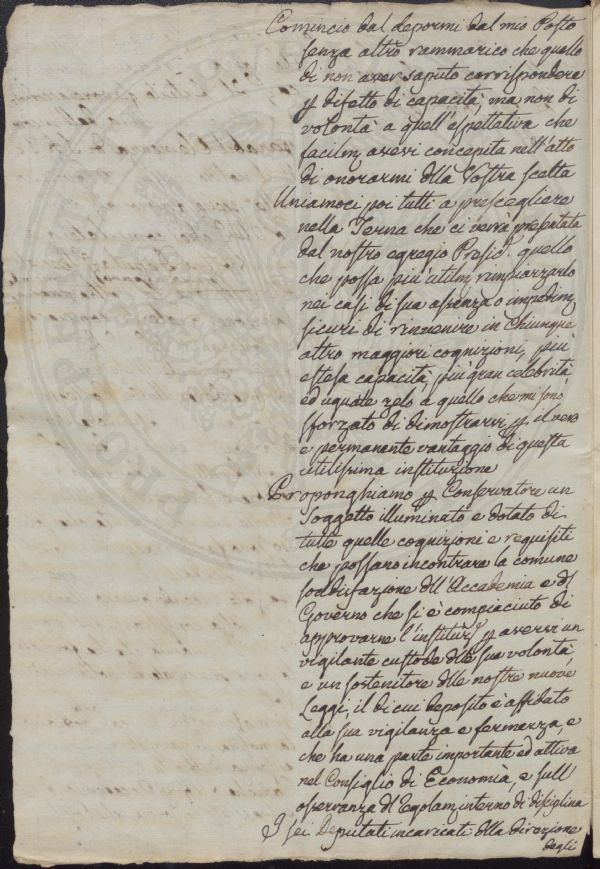 Comincio dal depormi dal mio Posto
senza altro rammarico che quello
di non aver saputo corrispondere
p difetto di capacità, ma non di
volontà a quell'espettativa che
facilm avevi concepita nell'atto
di onorarmi dlla Vostra scelta
Uniamoci poi tutti a prescegliere
nella Terna che ci verrà presentata
dal nostro egregio Presid. quello
che possa più utilm rimpiazzarlo
nei casi di sua assenza o impedim
sicuri di rinvenire in chiunque
altro maggiori cognizioni, più
estesa capacità, più gran celebrità
ed uguale zelo a quello che mi sono
sforzato di dimostrarvi p il vero
e permanante vantaggio di questa
utilissima instituzione
Proponghiamo p Conservatore un
Soggetto illuminato e dotato di
tutte quelle cognizioni e requisiti
che possano incontrare la comune
soddisfazione dll'Accademia e dl
Governo che si è compiaciuto di
approvarne l'instituz p avervi un
vigilante custode dlle sua volontà
e un sostenitore dlle nostre nuove
Leggi, il di cui deposito è affidato
alla sua vigilanza e fermezza, e
che ha una parte importante ed attiva
nel Consiglio di Economia, e sull'
osservanza dl Regolam interno di disciplina
I sei Deputati incaricati dlla direzione
degli